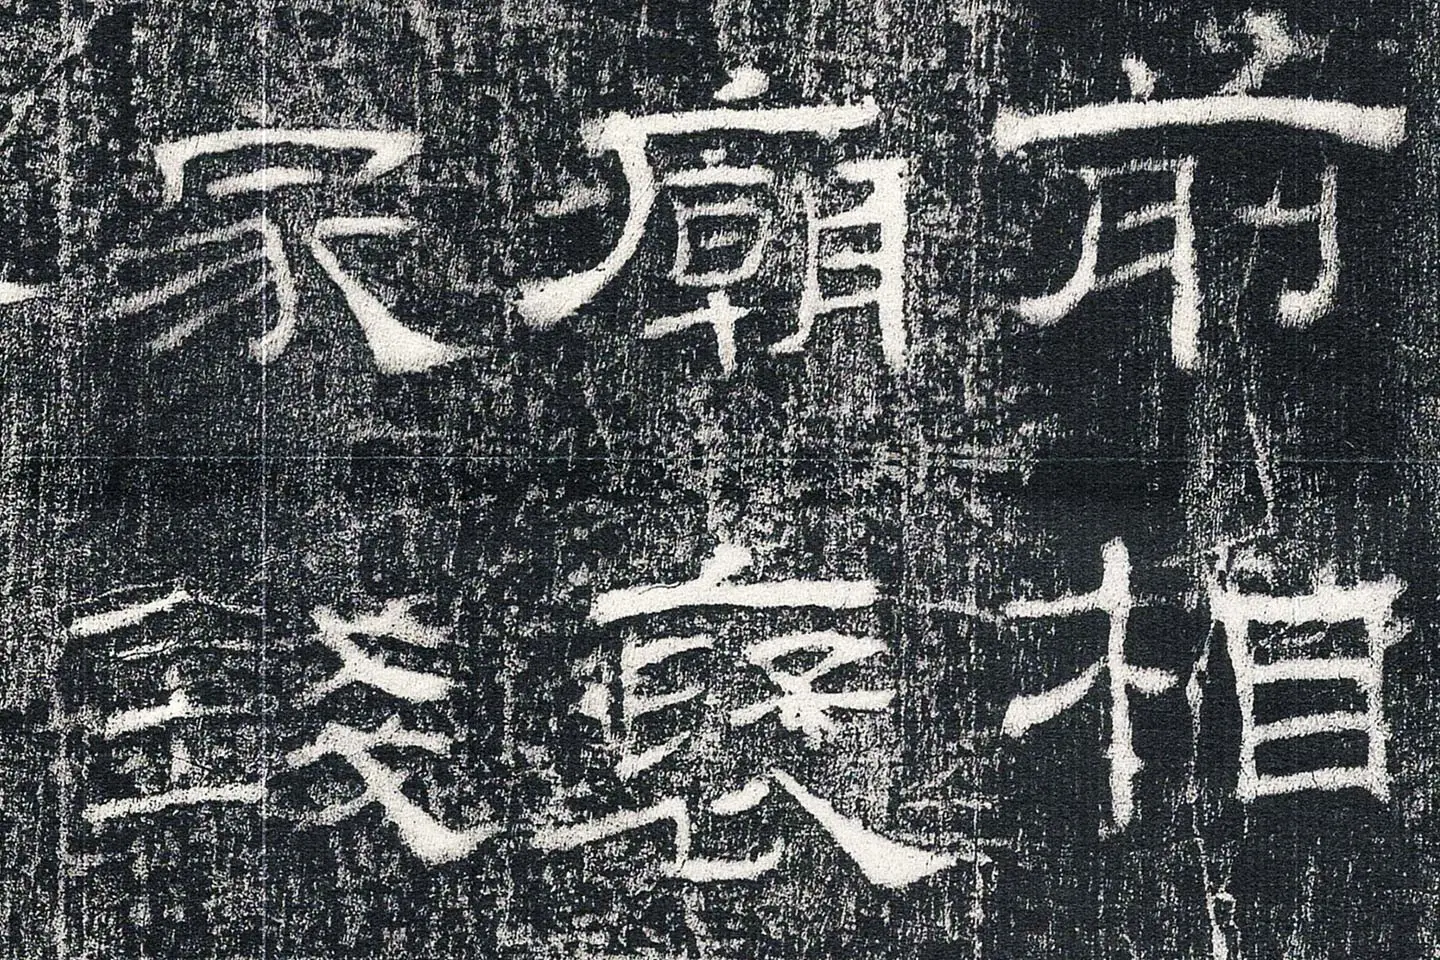 前相
廟褒
家錢